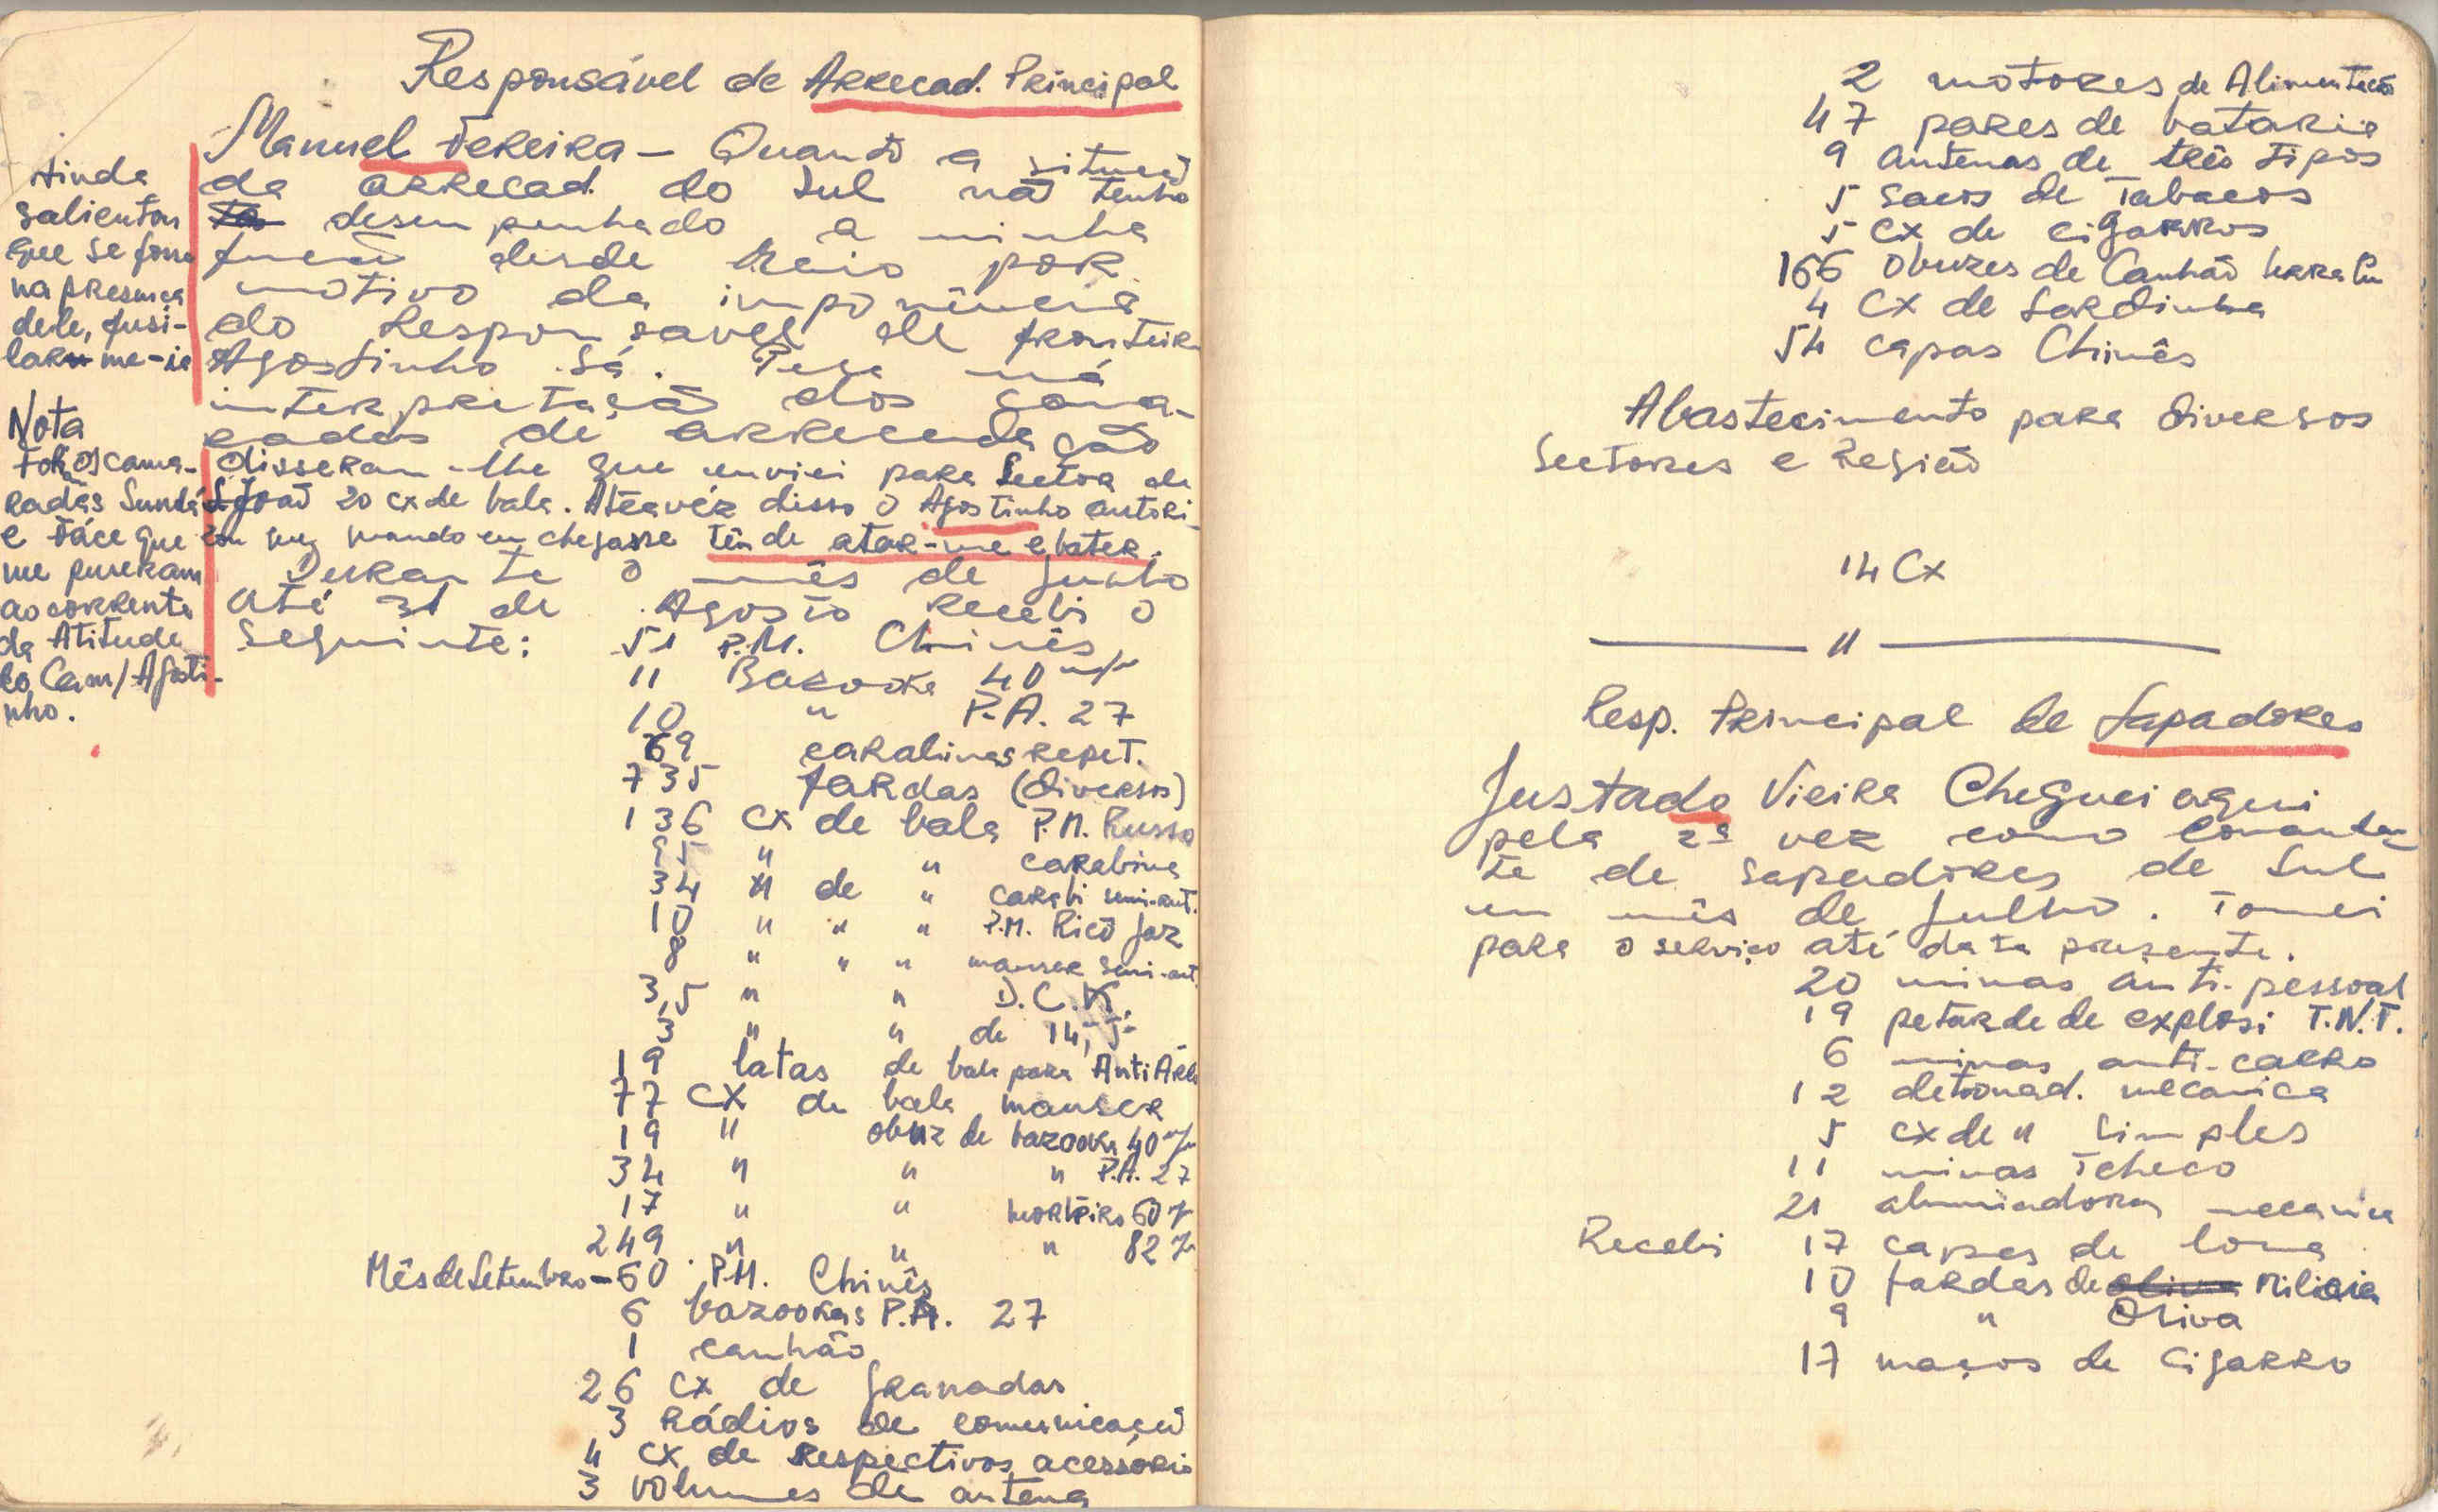 Responsável de Arrecad. Principal
Manuel Pereira – Quanto a situaçã
da arrecad. do Sul nã tenho
desempenhado a minha
funcã desde Maio por
motivo da imponência
do Responsavel de fronteira
Agostinho Sá. Pela má
interpretaçã dos cama-
radas de arrecadação
disseram-lhe que enviei para Sector de
S. Joaõ 20 cx de bala. Atravéz disso o Agostinho autori-
zou que quando eu chegasse têm de atar-me e bater.
Durante o mês de Junho
até 31 de Agosto recebi o
seguinte:
51 P.M. Chinês
11 Bazooka 40 m/m
10 " P.A. 27
69 carabinas repet.
735 fardas (diversos)
136 cx de bala P.M. Russo
" " carabina
34 " de " carabi semi-aut.
10 " " " P.M. Ricõ Jaz
8 " " " mauser semi-aut.
3,5 " " D.C.K.
3 " " de 14,5
19 latas de bala para Anti Aére
77 cx de bala mauser
19 " obuz de bazooka 40 m/m
34 " " " P.A. 27
17 " " mortéiro 60 m/
249 " " " 82 m/
Mês de Setembro – 60 P.M. Chinês
6 bazookas P.A. 27
1 canhão
26 cx de granadas
3 Rádios de comunicaçã
4 cx de Respectivos acessório
3 volumes de antena
Ainda
salientou
que se fosse
na presença
dele, fusi-
lar me-ia
Nota
Fôr os cama-
radas Sundá
e Face que
me puseram
ao corrente
da Atitude
do Cam/Agosti-
nho.
2 motores de Alimentacã
47 pares de bataria
9 antenas de três tipos
5 sacos de Tabacos
5 cx de cigarros
166 obuzes de Canhão
4 cx de Sardinha
54 capas Chinês
Abastecimento para diversos
Sectores e Região
14 Cx
"
Resp. Principal de Sapadores
Justado Vieira Cheguei aqui
pela 2ª vez como Comandan-
te de Sapadores de Sul
em mês de Julho. Tomei
para o serviço até data presente.
20 minas anti-pessoal
19 petarde de explosi T.N.T.
6 minas anti-carro
12 detonad. mecanica
5 cx de " simples
11 minas Tcheco
21 alumiadora mecanica
Recebi 17 capas de lona
10 fardas de oliva Milicia
9 " Oliva
17 maços de cigarro